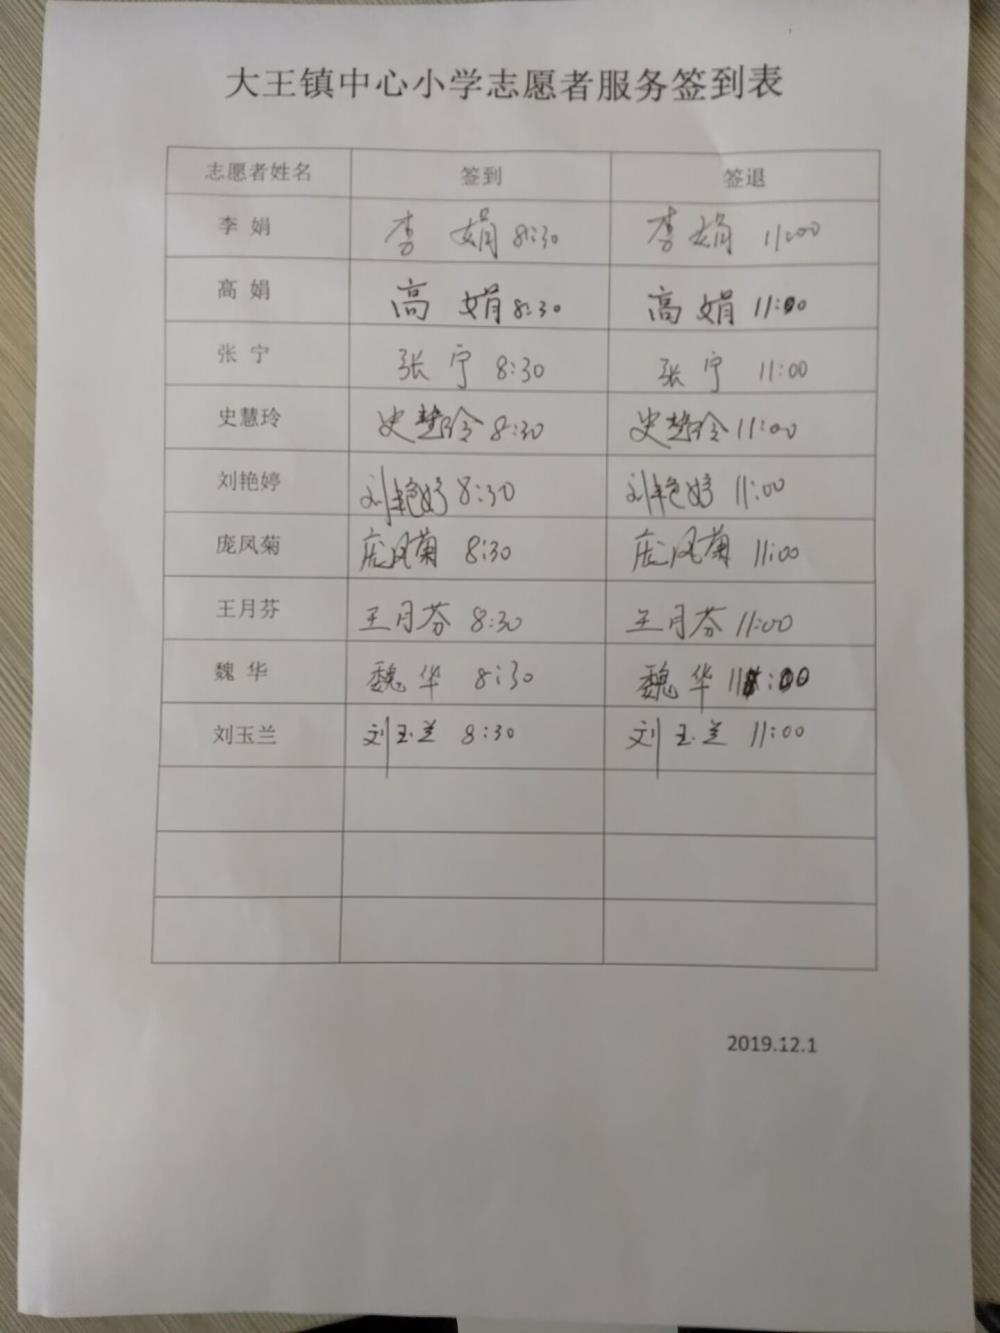 大王镇中心小学志愿者服务签到表
志愿者姓名 签到 签退
李 娟 李 娟 8:30 李 娟 11:00
高 娟 高 娟 8:30 高 娟 11:00
张 宁 张 宁 8:30 张 宁 11:00
史慧玲 史慧玲 8:30 史慧玲 11:00
刘艳婷 刘艳婷 8:30 刘艳婷 11:00
庞凤菊 庞凤菊 8:30 庞凤菊 11:00
王月芬 王月芬 8:30 王月芬 11:00
魏 华 魏 华 8:30 魏 华 11:00
刘玉兰 刘玉兰 8:30 刘玉兰 11:00
2019.12.1